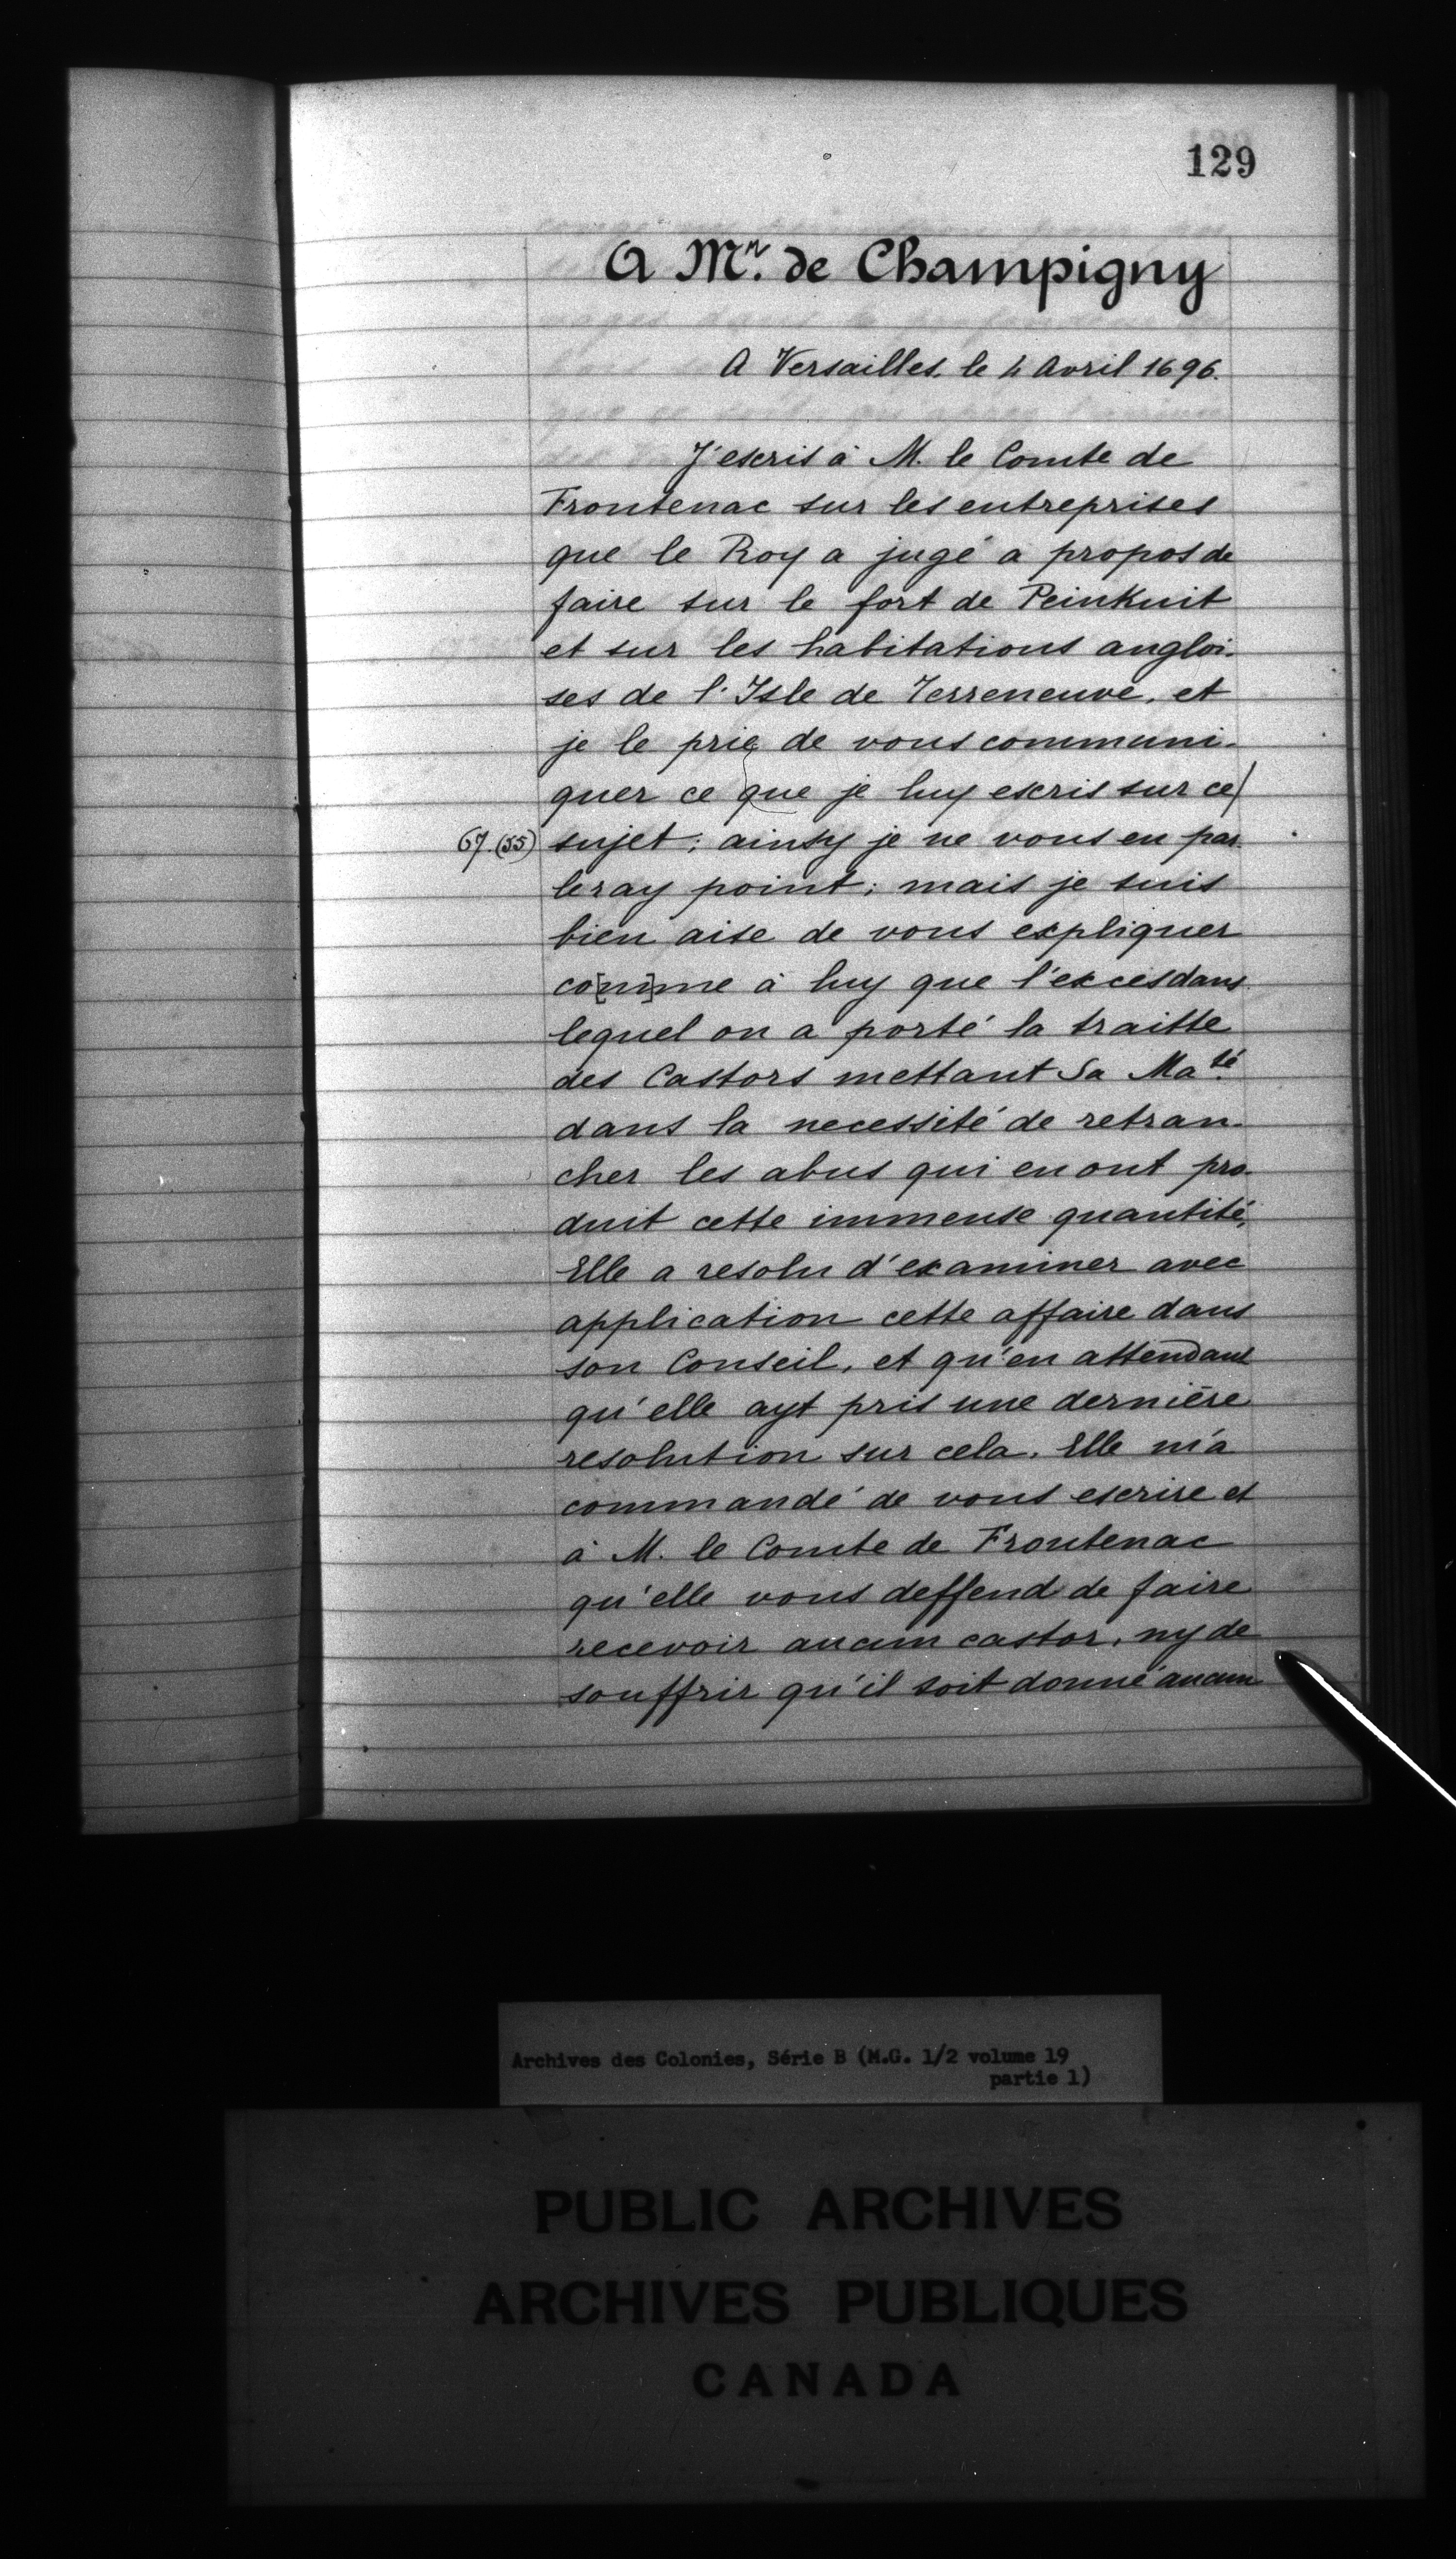 129
A Mr. de Champigny
A Versailles, le 4 Avril 1696.
J'escris à M. le Comte de
Frontenac sur les entreprises
que le Roy a jugé a propos de
faire sur le fort de Peinkuit
et sur les habitations angloi-
ses de l'Isle de Terreneuve, et
je le prie de vous communi-
quer ce que je luy escris sur ce/
67.(55) sujet; ainsy je ne vous en par-
leray point; mais je suis
bien aise de vous expliquer
co[m]me à luy que l'exces dans
lequel on a porté la traitte
des Castors mettant Sa Maté.
dans la necessité de retran-
cher les abus qui en ont pro-
duit cette immense quantité,
Elle a resolu d'examiner avec
application cette affaire dans
son Conseil, et qu'en attendant
qu'elle ayt pris une dernière
resolution sur cela. Elle m'a
commandé de vous escrire et
à M. le Comte de Frontenac
qu'elle vous deffend de faire
recevoir aucun castor, ny de
souffrir qu'il soit donné aucun
Archives des Colonies, Série B (M.G. 1/2 volume 19
partie 1)
PUBLIC ARCHIVES
ARCHIVES PUBLIQUES
CANADA